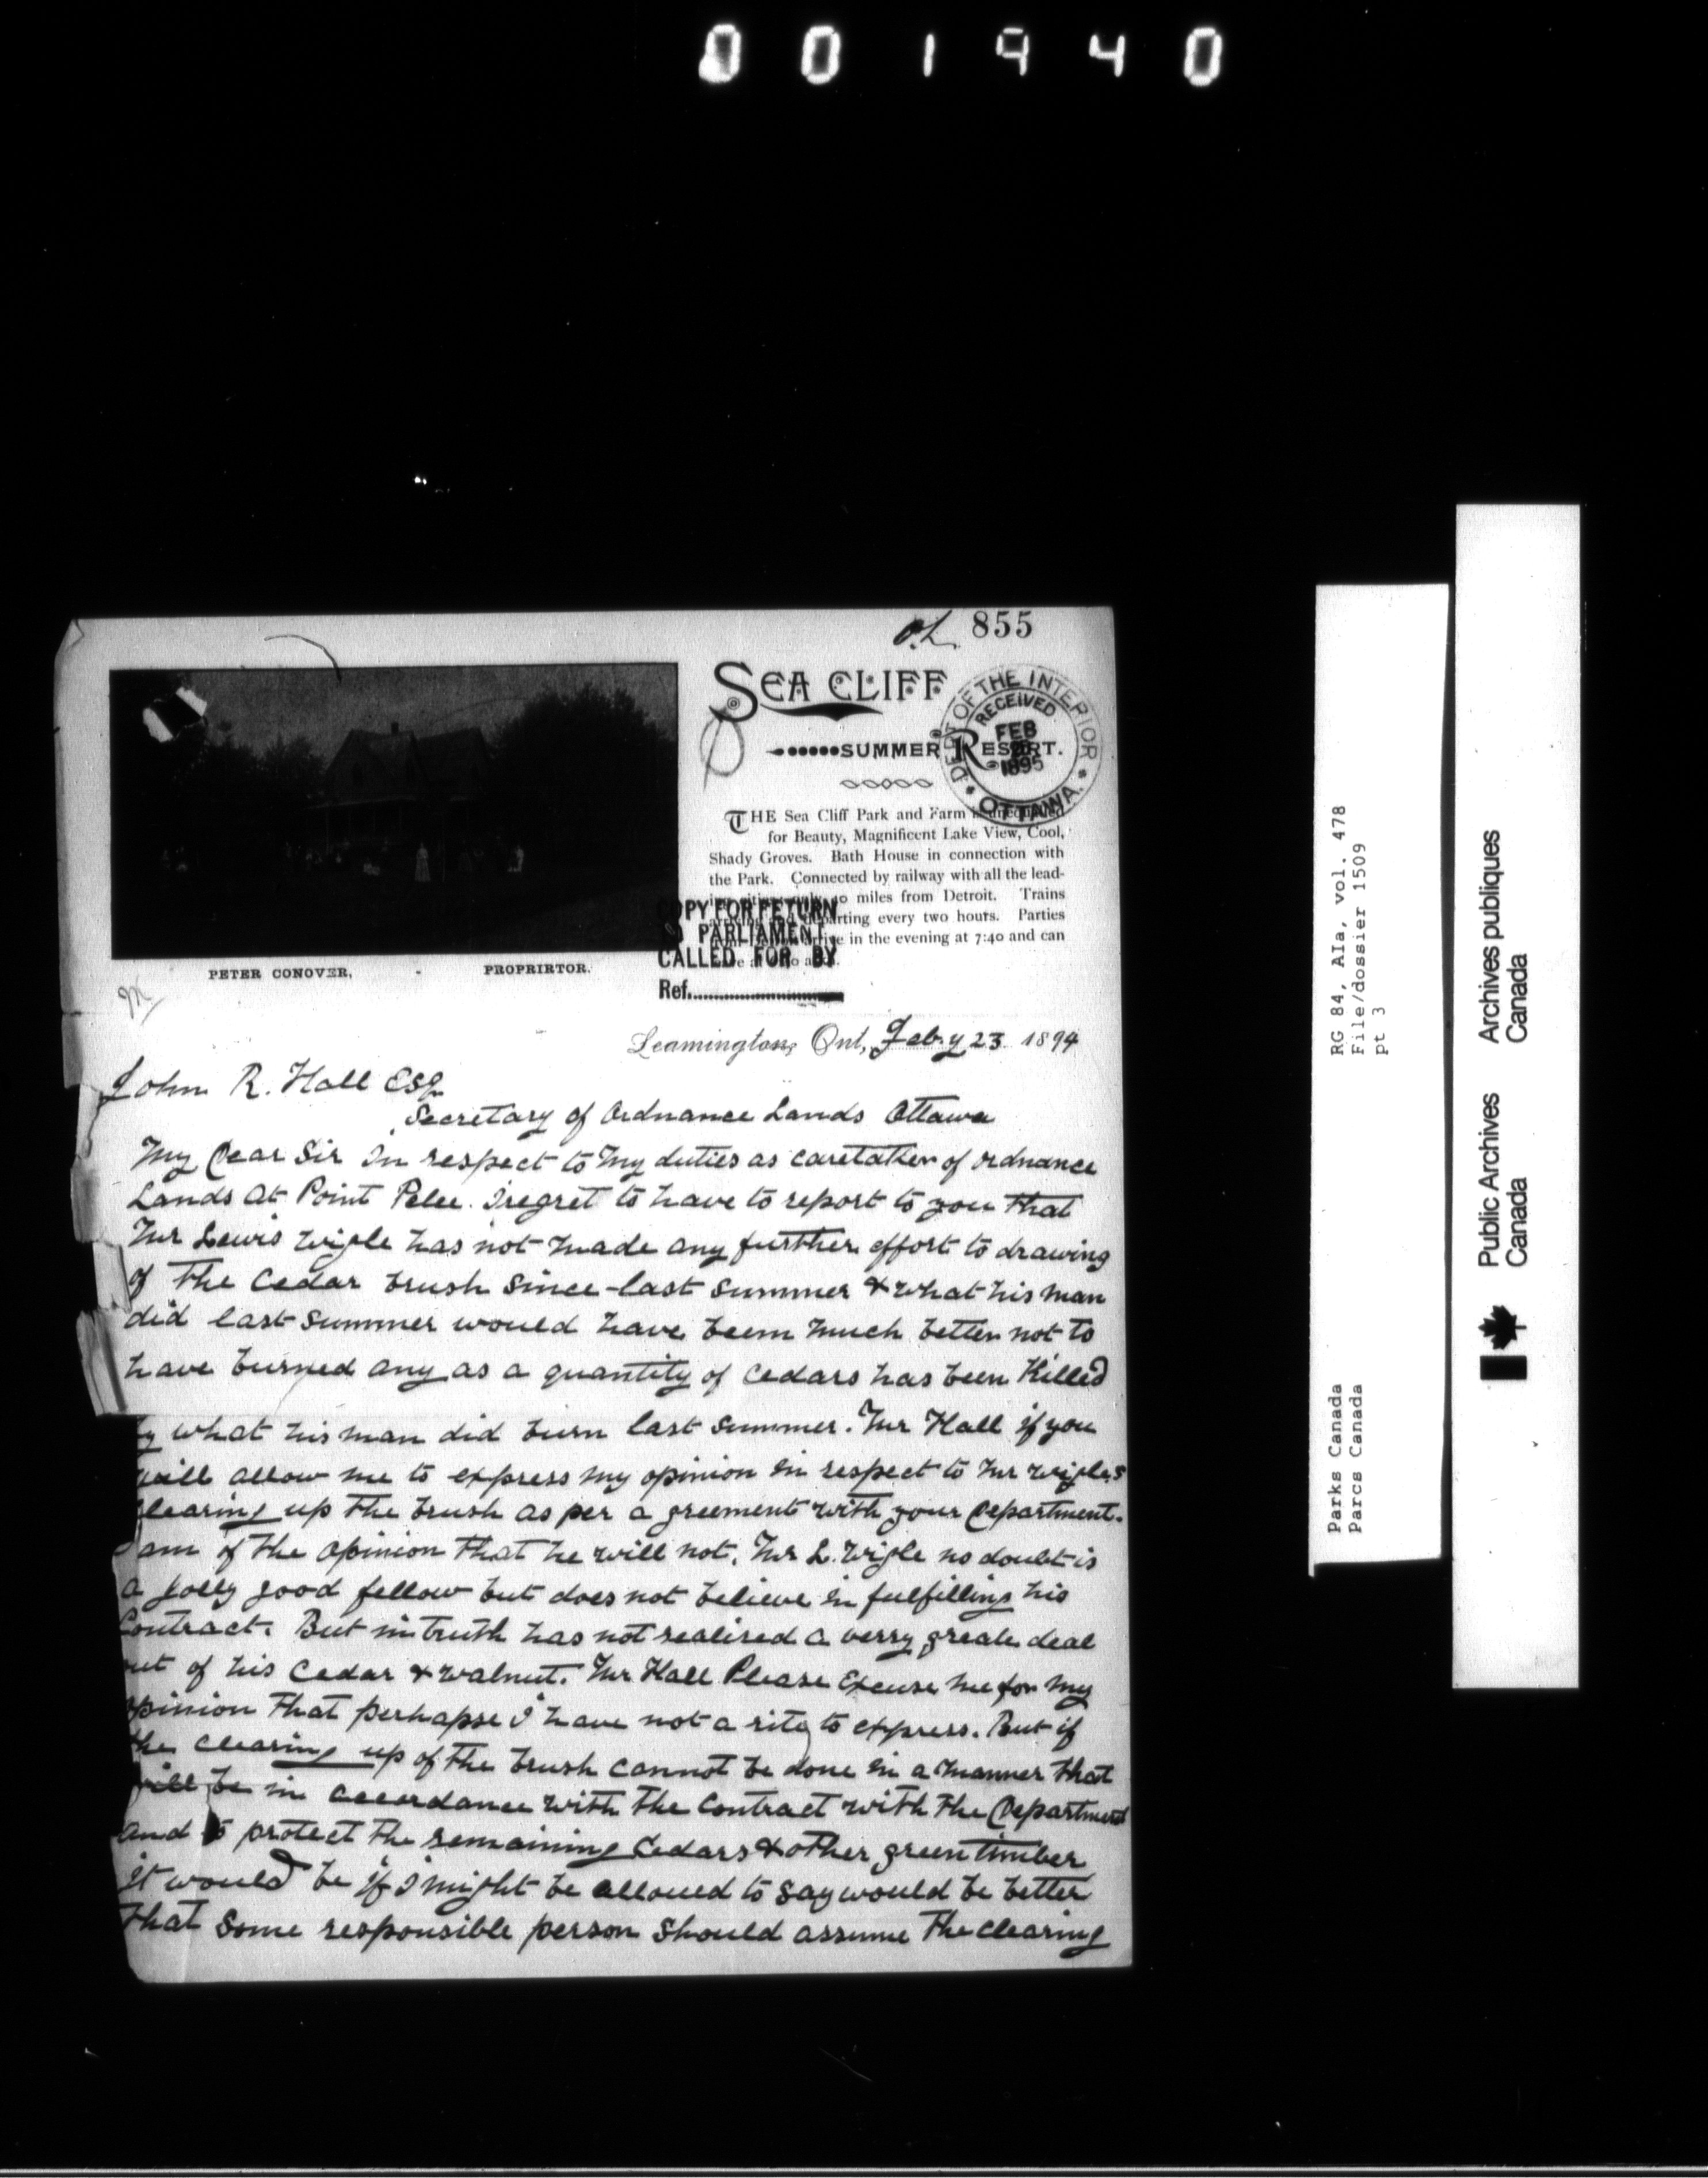 001940
O.L. 855
SEA CLIFF
SUMMER RESORT.
DEPT OF THE INTERIOR
RECEIVED
FEB
1895
OTTAWA
THE Sea Cliff Park and Farm is unequalled
for Beauty, Magnificent Lake View, Cool,
Shady Groves. Bath House in connection with
the Park. Connected by railway with all the lead-
ing cities, only 40 miles from Detroit. Trains
arriving and departing every two hours. Parties
arrive in the evening at 7:40 and can
COPY FOR RETURN
TO PARLIAMENT
CALLED FOR BY
Ref.
PETER CONOVER, - PROPRIETOR.
Leamington, Ont, Feb.y 23 1894
John R. Hall Esq
Secretary of Ordnance Lands Ottawa
My Dear Sir In respect to My duties as caretaker of ordnance
Lands at Point Pelee. I regret to have to report to you that
Mr Lewis Wigle has not made any further effort to drawing
of the Cedar brush since last summer & what his man
did last summer would have beem much better not to
have burned any as a quantity of cedars has been Killed
by what his man did burn last summer. Mr Hall if you
will allow me to express my opinion in respect to Mr Wigle,s
clearing up the brush as per a greement with your Department.
I am of the opinion that he will not. Mr L. Wigle no doubt is
a jolly good fellow but does not believe in fulfilling his
Contract. But in truth has not realised a verry greate deal
out of his Cedar & walnut. Mr Hall Please Excuse me for my
opinion that perhapse I have not a rite to express. But if
the clearing up of the brush cannot be done in a manner that
will be in accordance with the Contract with the Department
and to protect the remaining Cedars & other green timber
it would be if I might be allowed to say would be better
that some responsible person should assume the clearing
RG 84, A1a, vol. 478
File/dossier 1509
pt 3
Parks Canada
Parcs Canada
Public Archives
Canada
Archives publiques
Canada